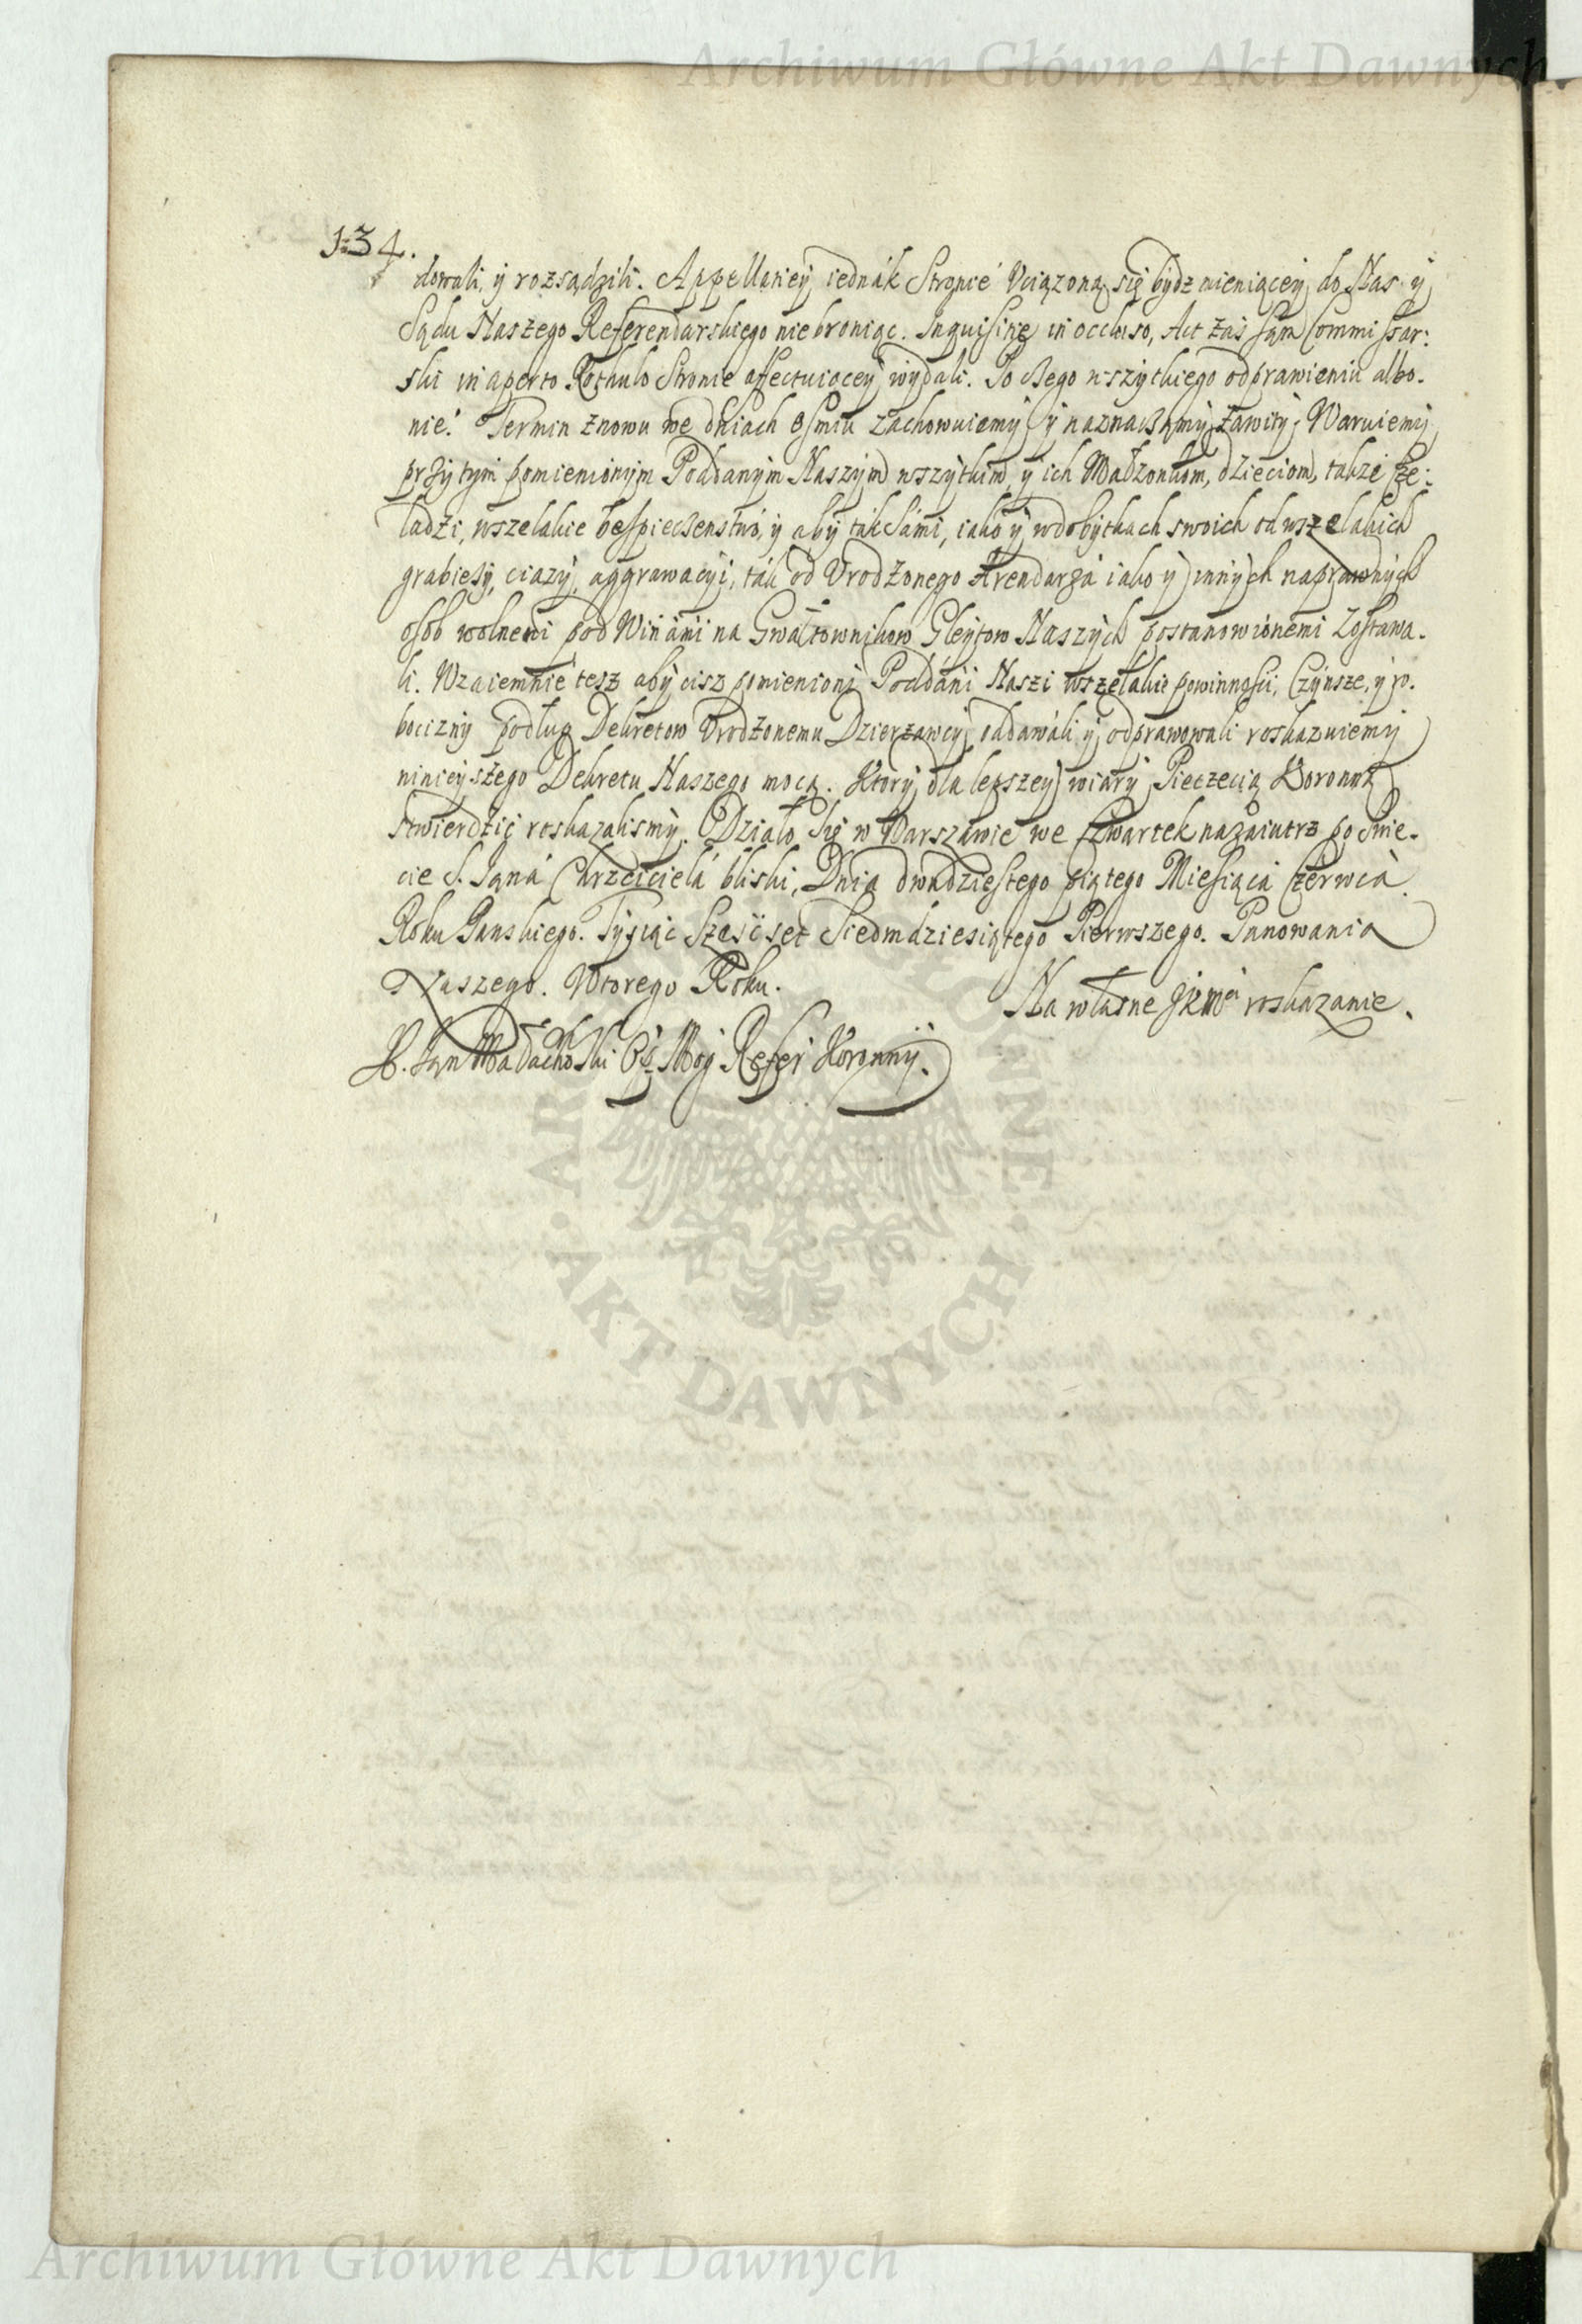 Archiwum Główne Akt Dawnych
134.
dowali, y rozsądzili. Appellaciey iednák Stronie Uciązoną się bydz mieniącey do Nas y
Sądu Naszego Referendarskiego nie broniąc. Inquisitię in occluso, Act zaś sąm Commissar:
ski in aperto Rothulo Stronie affectuiącey wydali. Po czego wszytkiego odprawieniu albo.
nie. Termin znowu we dniach osmiu zachowuiemy y naznaczamy zawity. Waruiemy
przytym pomienionym Poddanym Naszym wszytkim, y ich Małzonkom, dzieciom, takze cze:
ladzi, wszelakie bespieczenstwo, y aby ták sámi, iako y w dobytkach swoich od wszelakich
grabiezy, ciązy, aggrawacyi, ták od Urodzonego Arendarza iako y innych naprawnych
osób wolnemi pod Winámi na Gwałtownikow Gleytow Naszych postanowionemi zostawa.
li. Wzaiemnie tesz aby cisz pomienioni Poddáni Naszi wszelakie powinnosci, Czynsze, y ro.
bocizny podług Dekretow Urodzonemu Dzierzawcy oddawáli y odprawowali roskazuiemy
ninieyszego Dekretu Naszego mocą. Ktory dla lepszey wiary Pieczęcią Koronną
stwierdzić roskazalismy. Działo się w Warszawie we Czwartek nazaiutrz po Swię.
cie S. Jąná Chrzciciela bliski, Dnia dwudziestego piątego Miesiąca Czerwcá
Roku Panskiego. Tysiąc Szesć set Siedmdziesiątego Pierwszego. Panowania
Naszego. Wtorego Roku.
Na własne JKMci roskazanie.
X. Jąn Małachoski Op. Mog Refer Koronny.
ARCHIWUM GŁÓWNE · AKT DAWNYCH ·
Archiwum Główne Akt Dawnych